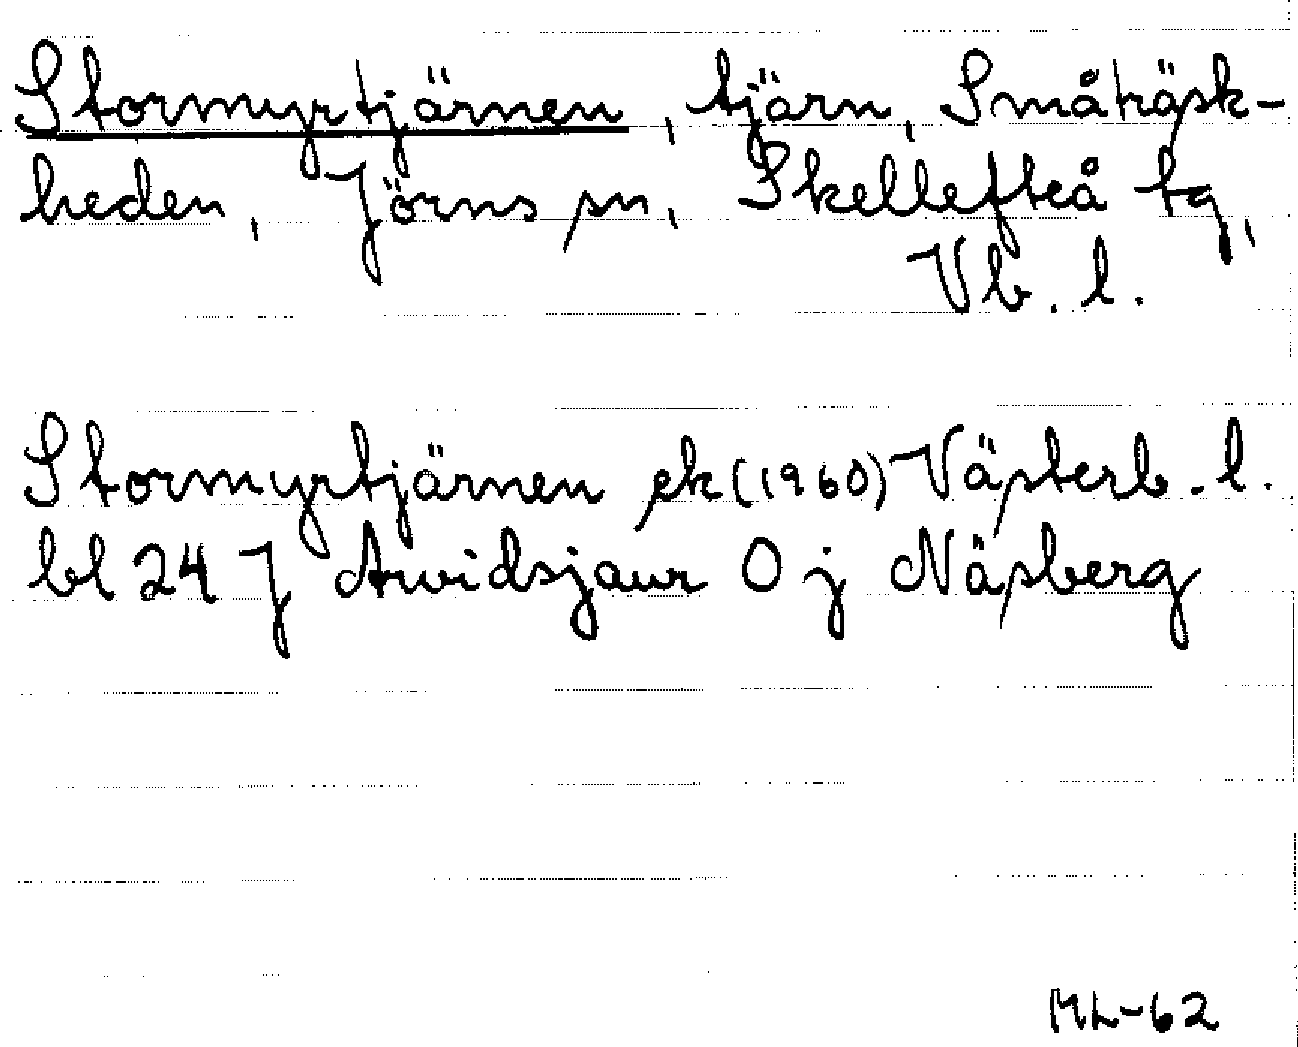 Stormyrtjärnen, tjärn, Småträsk-
heden, Jörns sn, Skellefteå tg,
Vb. l.
Stormyrtjärnen ek (1960) Västerb. l.
bl 24 J Arvidsjaur 0 j Näsberg
ML-62